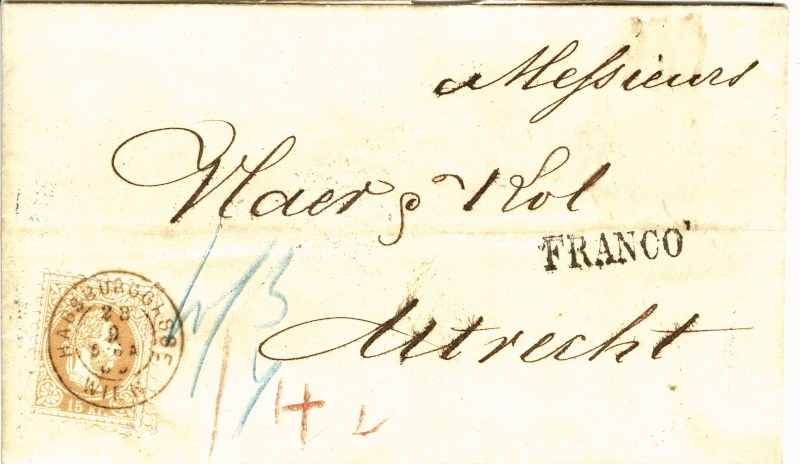 Messieurs
Vlaer & Kol
FRANCO
Utrecht
HABSBURGGASSE
28
9
WIEN
15 Kr.
4